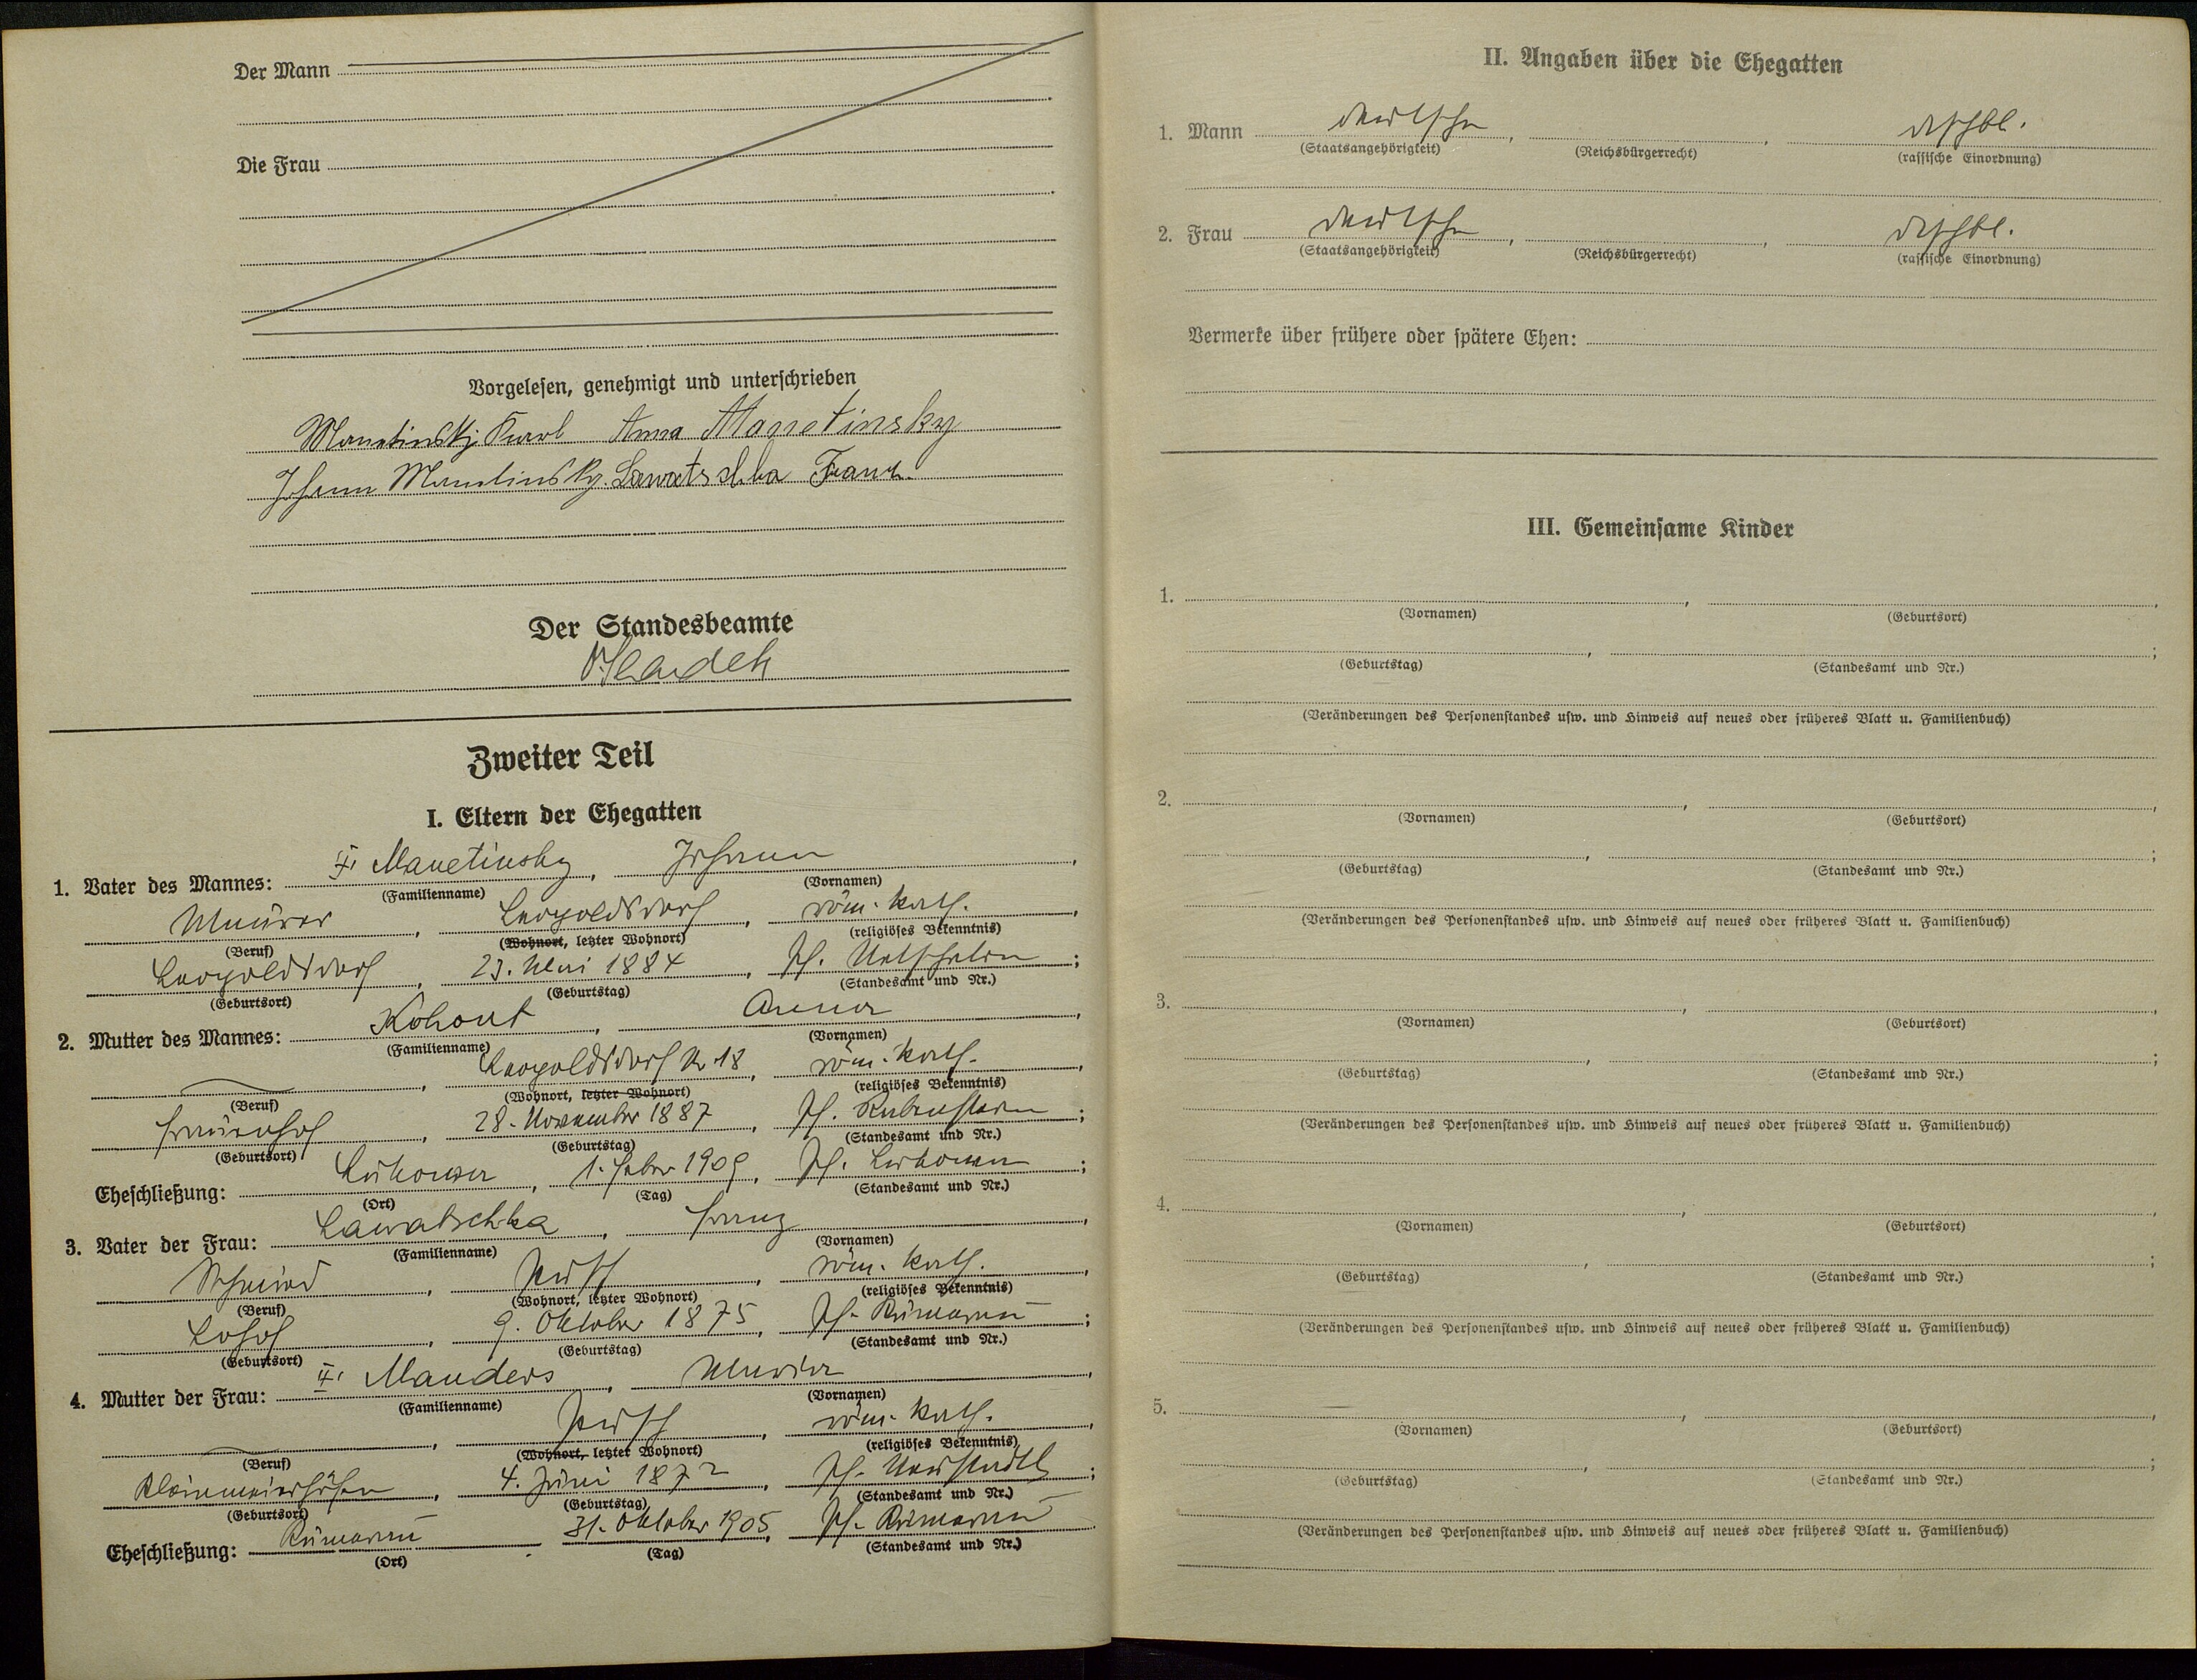 Der Mann
Die Frau
Vorgelesen, genehmigt und unterschrieben
Manetinskÿ Karl Anna Manetinsky
Johann Manetinsky. Lawatschka Franz.
Der Standesbeamte
Zweiter Teil
I. Eltern der Ehegatten
1. Vater des Mannes: Manetinsky, Johann,
(Familienname) (Vornamen)
Maurer, Leopoldsdorf, röm. kath.,
(Beruf) (Wohnort, letzter Wohnort) (religiöses Bekenntnis)
Leopoldsdorf, 23. Mai 1884, Pf.
(Geburtsort) (Geburtstag) (Standesamt und Nr.)
2. Mutter des Mannes: Kohout, Anna,
(Familienname) (Vornamen)
Leopoldsdorf Nr 18, röm. kath.,
(Beruf) (Wohnort, letzter Wohnort) (religiöses Bekenntnis)
Frauenhof, 28. November 1887, Pf.
(Geburtsort) (Geburtstag) (Standesamt und Nr.)
Eheschließung: 1. Feber 1909, Pf.
(Ort) (Tag) (Standesamt und Nr.)
3. Vater der Frau: Lawatschka, Franz,
(Familienname) (Vornamen)
Schmied, röm. kath.,
(Beruf) (Wohnort, letzter Wohnort) (religiöses Bekenntnis)
9. Oktober 1875, Pf.
(Geburtsort) (Geburtstag) (Standesamt und Nr.)
4. Mutter der Frau: Manders, Maria,
(Familienname) (Vornamen)
röm. kath.,
(Beruf) (Wohnort, letzter Wohnort) (religiöses Bekenntnis)
4. Juni 1872, Pf.
(Geburtsort) (Geburtstag) (Standesamt und Nr.)
Eheschließung: 31. Oktober 1905, Pf.
(Ort) (Tag) (Standesamt und Nr.)
II. Angaben über die Ehegatten
1. Mann deutsche, , dtschbl.
(Staatsangehörigkeit) (Reichsbürgerrecht) (rassische Einordnung)
2. Frau deutsche, , dtschbl.
(Staatsangehörigkeit) (Reichsbürgerrecht) (rassische Einordnung)
Vermerke über frühere oder spätere Ehen:
III. Gemeinsame Kinder
1.
(Vornamen) (Geburtsort)
(Geburtstag) (Standesamt und Nr.)
(Veränderungen des Personenstandes usw. und Hinweis auf neues oder früheres Blatt u. Familienbuch)
2.
(Vornamen) (Geburtsort)
(Geburtstag) (Standesamt und Nr.)
(Veränderungen des Personenstandes usw. und Hinweis auf neues oder früheres Blatt u. Familienbuch)
3.
(Vornamen) (Geburtsort)
(Geburtstag) (Standesamt und Nr.)
(Veränderungen des Personenstandes usw. und Hinweis auf neues oder früheres Blatt u. Familienbuch)
4.
(Vornamen) (Geburtsort)
(Geburtstag) (Standesamt und Nr.)
(Veränderungen des Personenstandes usw. und Hinweis auf neues oder früheres Blatt u. Familienbuch)
5.
(Vornamen) (Geburtsort)
(Geburtstag) (Standesamt und Nr.)
(Veränderungen des Personenstandes usw. und Hinweis auf neues oder früheres Blatt u. Familienbuch)